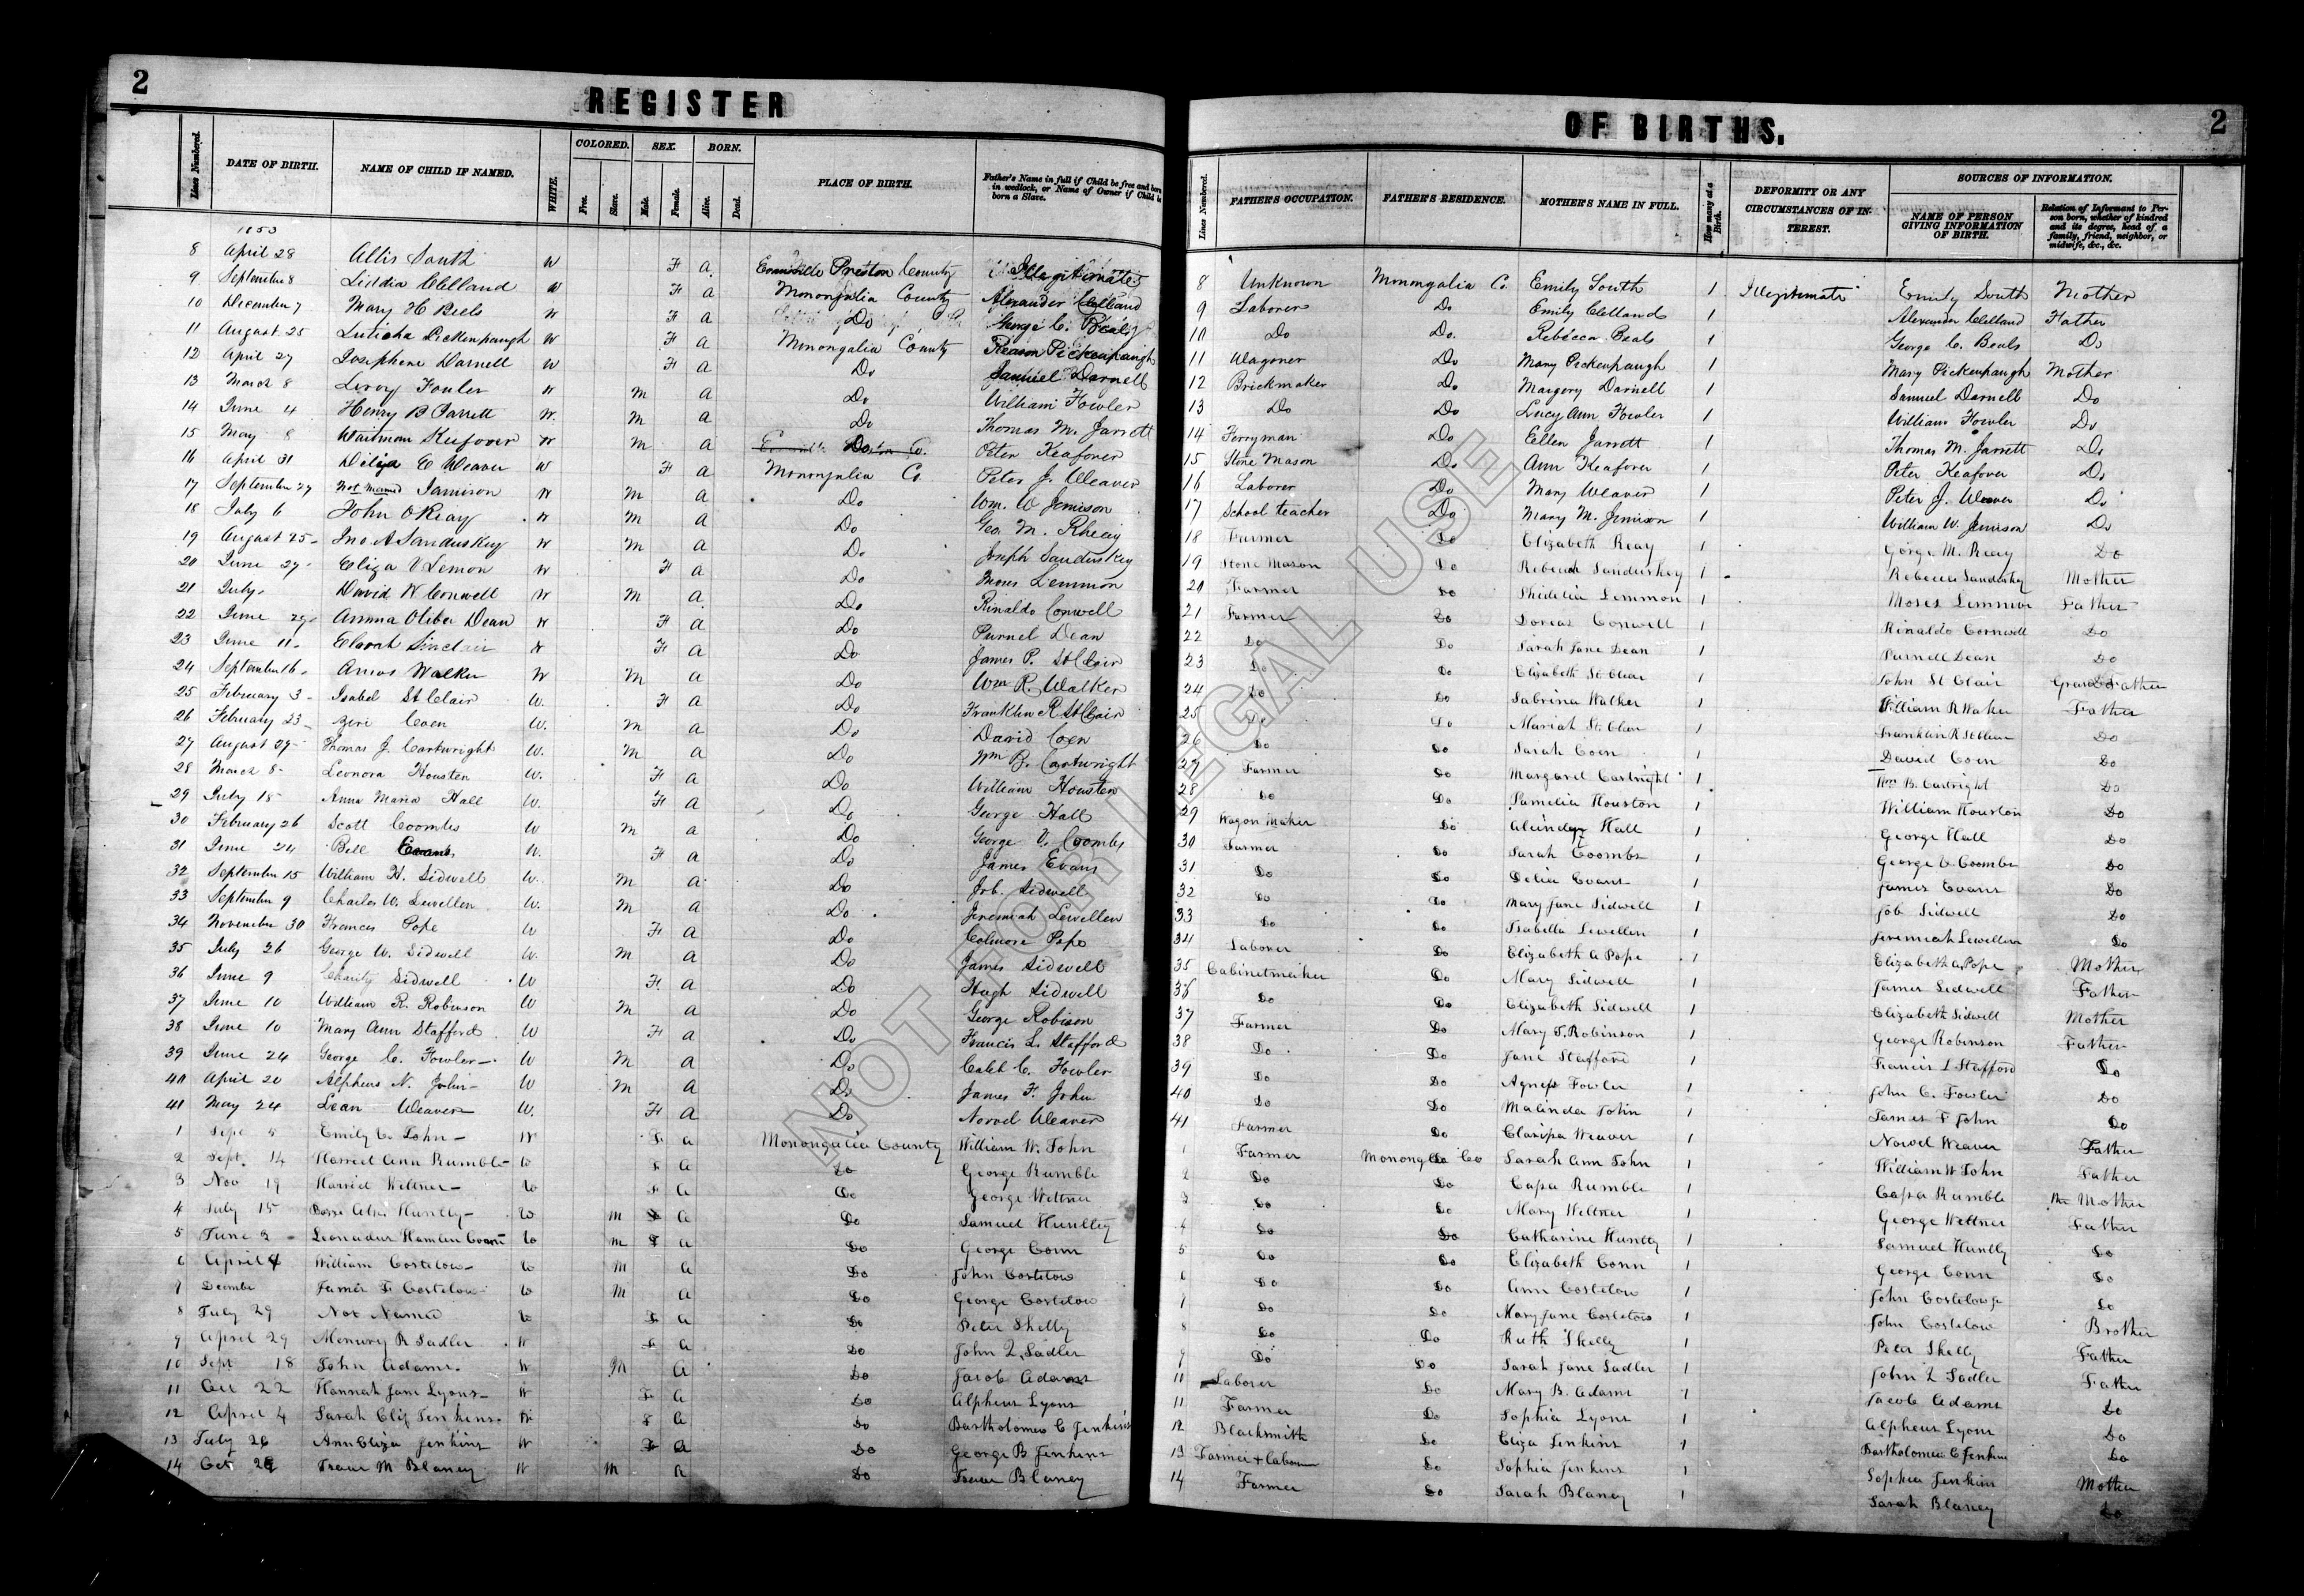 2
REGISTER
Lines Numbered. DATE OF BIRTH. NAME OF CHILD IF NAMED. WHITE. COLORED. Free. Slave. SEX. Male. Female. BORN. Alive. Dead. PLACE OF BIRTH. Father's Name in full if Child be free and born in wedlock, or Name of Owner if Child be born a Slave.
1853
8 April 28 Allis South W F A Evansville Preston County Illegitimate
9 September 8 Liddia Clelland W F A Monongalia County Alexander Clelland
10 December 7 Mary H W F A Do George C. Beals
11 August 25 Luticha Pickenpaugh W F A Monongalia County Reason Pickenpaugh
12 April 27 Josephene Darnell W F A Do Samuel Darnell
13 March 8 Leroy Fouler W M A Do William Fowler
14 June 4 Henry B Jarrett W. M A Do Thomas M. Jarrett
15 May 8 Waitman Kefover W M A Do Peter Keafover
16 April 31 C Weaver W F A Monongalia Co. Peter J. Weaver
17 September 27 Not Named Jamison W M A Do Wm. W Jemison
18 July 6 John O Reay W M A Do Geo. M. Rheay
19 August 25 Jno. A Sanduskey W M A Do Joseph Sanduskey
20 June 27 Eliza V Lemon W F A Do Moses Lemmon
21 July David W Conwell W M A Do Rinaldo Conwell
22 June 29 Dean W F A Do Purnel Dean
23 June 11 Sinclair W F A Do James P. St Clair
24 September 16 Amos Walker W M A Do Wm R. Walker
25 February 3 Isabel St Clair W. F A Do Franklin R. St Clair
26 February 23 Coen W. M A Do David Coen
27 August 29 Thomas J. Cartwright W. M A Do Wm B. Cartwright
28 March 8 Leonora Housten W. F A Do William Housten
29 July 18 Anna Maria Hall W. F A Do George Hall
30 February 26 Scott Coombs W M A Do George V. Coombs
31 June 24 Bell Evans W. F A Do James Evans
32 September 15 William H. Sidwell W. M A Do Job. Sidwell
33 September 9 Charles W. Lewellen W. M A Do Jeremiah Lewellen
34 November 30 Frances Pope W F A Do Colmore Pope
35 July 26 George W. Sidwell W. M A Do James Sidwell
36 June 9 Charity Sidwell W F A Do Hugh Sidwell
37 June 10 William R. Robinson W M A Do George Robison
38 June 10 Mary Ann Stafford W F A Do Francis L. Stafford
39 June 24 George C. Fowler W M A Do Caleb C. Fowler
40 April 20 Alpheus N. John W M A Do James F. John
41 May 24 Lean Weaver W. F A Do Norvel Weaver
1 Sept 5 Emily C. John W F A Monongalia County William W. John
2 Sept. 14 Harriet Ann Rumble W F A Do George Rumble
3 Nov 19 Harriet Weltner W F A Do George Weltner
4 July 15 Huntly W M A Do Samuel Huntley
5 June 2 Hamlen Conn W M A Do George Conn
6 April 4 William Costelow W M A Do John Costelow
7 Decembe James F Costelow W M A Do George Costelow
8 July 29 Not Named W F A Do Peter Shelly
9 April 29 R Sadler W F A Do John L. Sadler
10 Sept 18 John Adams W M A Do Jacob Adams
11 Oct 22 Hannah Jane Lyons W F A Do Alpheus Lyons
12 April 4 Sarah Eliz Jenkins W F A Do Bartholomew C Jenkins
13 July 26 Ann Eliza Jenkins W F A Do George B Jenkins
14 Oct M Blaney W M A Do Isaac Blaney
2
OF BIRTHS.
Lines Numbered. FATHER'S OCCUPATION. FATHER'S RESIDENCE. MOTHER'S NAME IN FULL. How many at a Birth. DEFORMITY OR ANY CIRCUMSTANCES OF INTEREST. SOURCES OF INFORMATION. NAME OF PERSON GIVING INFORMATION OF BIRTH. Relation of Informant to Person born, whether of kindred and its degree, head of a family, friend, neighbor, or midwife, &c., &c.
8 Unknown Monongalia Co. Emily South 1 Illegitimate Emily South Mother
9 Laborer Do Emily Clelland 1 Alexander Clelland Father
10 Do Do. Rebecca Beals 1 George C. Beals Do
11 Wagoner Do Mary Pickenpaugh 1 Mary Pickenpaugh Mother
12 Brickmaker Do Margery Darnell 1 Samuel Darnell Do
13 Do Do Lucy Ann Fowler 1 William Fowler Do
14 Ferryman Do Ellen Jarrett 1 Thomas M. Jarrett Do
15 Stone Mason Do Ann Keafover 1 Peter Keafover Do
16 Laborer Do Mary Weaver 1 Peter J. Weaver Do
17 School teacher Do Mary M. Jemison 1 William W. Jemison Do
18 Farmer Do Elizabeth Reay 1 George M. Reay Do
19 Stone Mason Do Rebecca Sanduskey 1 Rebecca Sanduskey Mother
20 Farmer Do Lemmon 1 Moses Lemmon Father
21 Farmer Do Dorcas Conwell 1 Rinaldo Cornwell Do
22 Do Do Sarah Jane Dean 1 Purnell Dean Do
23 Do Do Elizabeth St. Clair 1 John St Clair Grand Father
24 Do Do Sabrina Walker 1 William R Waker Father
25 Do Do Mariah St. Clair 1 Franklin R St Clair Do
26 Do Do Sarah Coen 1 David Coen Do
27 Farmer Do Margaret Cartright 1 Wm B. Cartright Do
28 Do Do Pamelia Houston 1 William Houston Do
29 Wagon Maker Do Hall 1 George Hall Do
30 Farmer Do Sarah Coombs 1 George V. Coombs Do
31 Do Do Delia Evans 1 James Evans Do
32 Do Do Mary Jane Sidwell 1 Job Sidwell Do
33 Do Do Isabella Lewellen 1 Jeremiah Lewellen Do
34 Laborer Do Elizabeth A Pope 1 Elizabeth A. Pope Mother
35 Cabinetmaker Do Mary Sidwell 1 James Sidwell Father
36 Do Do Elizabeth Sidwell 1 Elizabeth Sidwell Mother
37 Farmer Do Mary T. Robinson 1 George Robinson Father
38 Do Do Jane Stafford 1 Francis L Stafford Do
39 Do Do Agness Fowler 1 John C. Fowler Do
40 Do Do Malinda John 1 James F John Do
41 Farmer Do Clarissa Weaver 1 Novel Weaver Father
1 Farmer Monongalia Co Sarah Ann John 1 William W John Father
2 Do Do Capa Rumble 1 Capa Rumble Mother
3 Do Do Mary Weltner 1 George Weltner Father
4 Do Do Catharine Huntly 1 Samuel Huntly Do
5 Do Do Elizabeth Conn 1 George Conn Do
6 Do Do Ann Costelow 1 John Costelow Do
7 Do Do Mary Jane Costelow 1 John Costelow Brother
8 Do Do Ruth Shelly 1 Peter Shelly Father
9 Do Do Sarah Jane Sadler 1 John L Sadler Father
10 Laborer Do Mary B. Adams 1 Jacob Adams Do
11 Farmer Do Sophia Lyons 1 Alpheus Lyons Do
12 Blacksmith Do Eliza Jenkins 1 Bartholomew C Jenkins Do
13 Farmer + Laborer Do Sophia Jenkins 1 Sophia Jenkins Mother
14 Farmer Do Sarah Blaney 1 Sarah Blaney Do
NOT FOR LEGAL USE